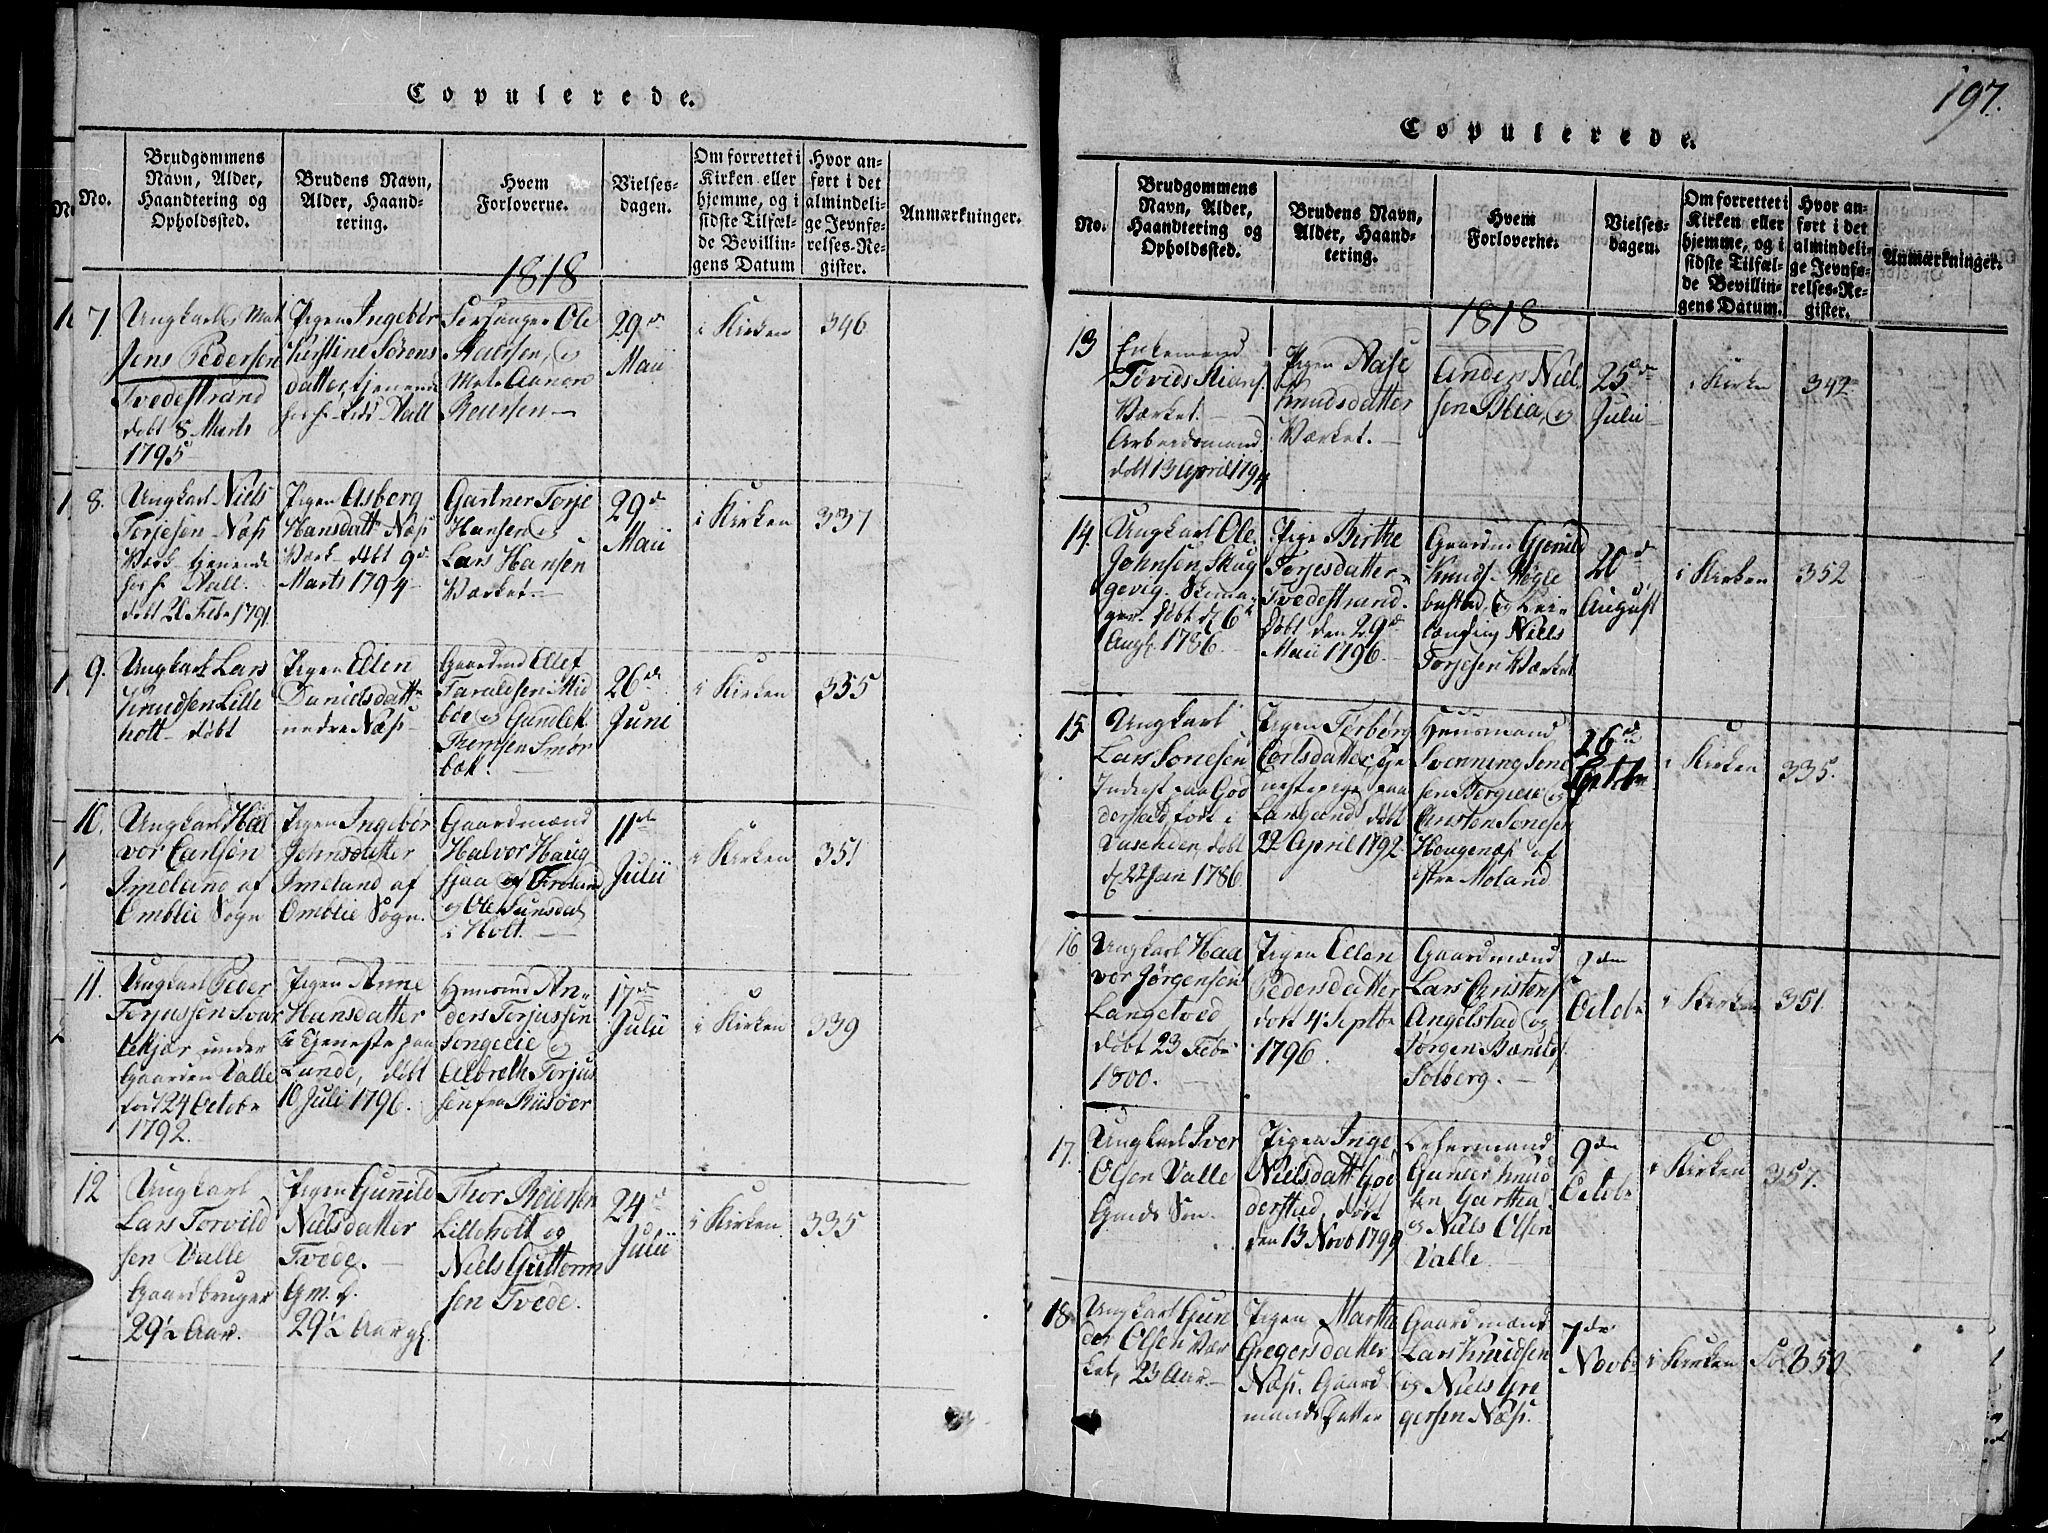 Copulerede.
No.
Brudgommens
Navn, Alder,
Haandtering og
Opholdssted.
Brudens Navn,
Alder, Haand-
tering.
Hvem
Forloverne.
Vielses-
dagen.
Om forrettet i
Kirken eller
hjemme, og i
sidste Tilfæl-
de Bevillin-
gens Datum
Hvor an-
ført i det
almindeli-
ge Jevnfø-
relses-Re-
gister.
Anmærkninger.
1818
7.
Ungkarl
Jens Pedersen
Tvedestrand
døbt 8 Marts
1795
Pigen Ingebør
Kirstine Sørens
datter, tjenende
Aall
Ole
Mats Aanon
29de
Maii
i Kirken
346
8.
Ungkarl Niels
Torjesen Næs
Værk tjenende
Aall.
døbt 21 Feb 1791
Pigen Asberg
Hansdatt Næs
Værk døbt 9de
Marts 1794
Gartner Torje
Hansen og
Lars Hansen
Værket.
29de
Maii
i Kirken
337
9.
Ungkarl Lars
Knudsen Lille
holt døbt
Pigen Ellen
Danielsdatt
nedre Næs
Gaardmd Ellef
Taraldsen Mid
boe og Gundek
Thomsen Smør
bæk.
26de
Juni
i Kirken
355
10.
Ungkarl Haa
vor Carlsen
Imeland af
Omblie Sogn
Pigen Ingebør
Johnsdatter
Imeland af
Omblie Sogn.
Gaardmænd
Halvor Haug
sjaa af Froland
og Ole Sunsdal
i Holt.
11te
Julii
i Kirken
351
11.
Ungkarl Peder
Torjussen Svar
tekjær under
Gaarden Valle
født 24 Octobr
1792.
Pigen Anne
Hansdatter
tjeneste paa
Lunde, døbt
10 Juli 1796.
Huusmd An-
ders Torjussen
Songeeie og
Albreth Torjus
sen fra Riisøer
17de
Julii
i Kirken
339
12
Ungkarl
Lars Torvild
sen Valle
Gaardbruger
29½ Aar.
Pigen Gunnild
Nielsdatter
Tvede.
Gm. d.
29½ Aar gl.
Thor Reiersen
Lilleholt og
Niels Guttorm
sen Tvede.
24de
Julii
i Kirken
335
197.
Copulerede.
No.
Brudgommens
Navn, Alder,
Haandtering og
Opholdssted.
Brudens Navn,
Alder, Haand-
tering.
Hvem
Forloverne.
Vielses-
dagen.
Om forrettet i
Kirken eller
hjemme, og i
sidste Tilfæl-
de Bevillin-
gens Datum.
Hvor an-
ført i det
almindeli-
ge Jevnfø-
relses-Re-
gister.
Anmærkninger.
1818
13
Enkemand
Værket.
Arbeidsmand
døbt 13 April 1794
Pigen Aase
Knudsdatter
Værket.
Anders Niel
sen Blia, og
25de
Julii
i Kirken
342
14.
Ungkarl Ole
Johnsen Skug
gevig. Skoma
ger. døbt d 6te
Augst 1786.
Pige Birthe
Torjesdatter
Tvedestrand.
døbt den 29de
Maii 1796.
Gaardmd Gjeruld
Knuds. Møgle
bustad, og
Niels
Torjesen Værket
20de
August
i Kirken
352
15.
Ungkarl
Lars Sonesen
Inderst paa God
derstad født i
døbt
d 22 Jan 1786.
Pigen Torbørg
Carlsdatter, tje
nestepige paa
Langand døbt
22 April 1792
Huusmand
Svenning Sone
sen Bergeeie og
Christen Sonesen
Hougenæs af
østre Moland
26de
Septbr
i Kirken
335.
16
Ungkarl Haa
vor Jørgensen
Langetved
døbt 23 Febr
1800.
Pigen Ellen
Pedersdatter
døbt 4 Septbr
1796.
Gaardmænd
Lars Christens
Angelstad og
Jørgen Bændts
Solberg.
9den
Octobr
i Kirken
351.
17.
Ungkarl Iver
Olsen Valle
Gmds Søn.
Pigen Inge
Nielsdatt God
derstad, døbt
den 13 Novb 1799
Lehnsmand
Gunder Knud
sen Gartha
og Niels Olsen
Valle.
9den
Octobr
i Kirken
357.
18.
Ungkarl Gun
der Olsen Vær
ket, 23 Aar.
Pigen Martha
Gregersdatter
Næs. Gaard
mands Datter
Gaardmænd
Lars Knudsen
og Niels Gre
gersen Næs.
7de
Novbr
i Kirken
350